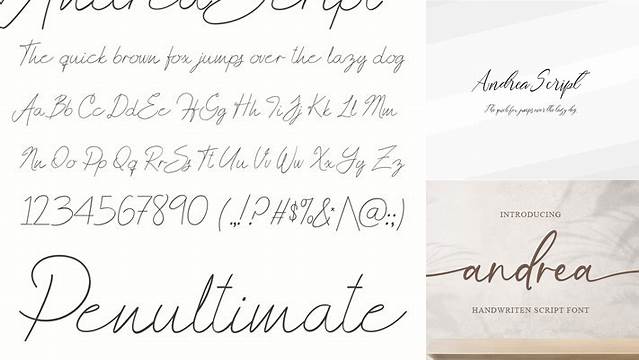 AndreaScript
The quick brown fox jumps over the lazy dog
Aa Bb Cc Dd Ee Ff Gg Hh Ii Jj Kk Ll Mm
Nn Oo Pp Qq Rr Ss Tt Uu Vv Ww Xx Yy Zz
1234567890 (.,!? #$%&* /\@:;)
Penultimate
Andrea Script
The quick fox jumps over the lazy dog.
INTRODUCING
andrea
HANDWRITEN SCRIPT FONT